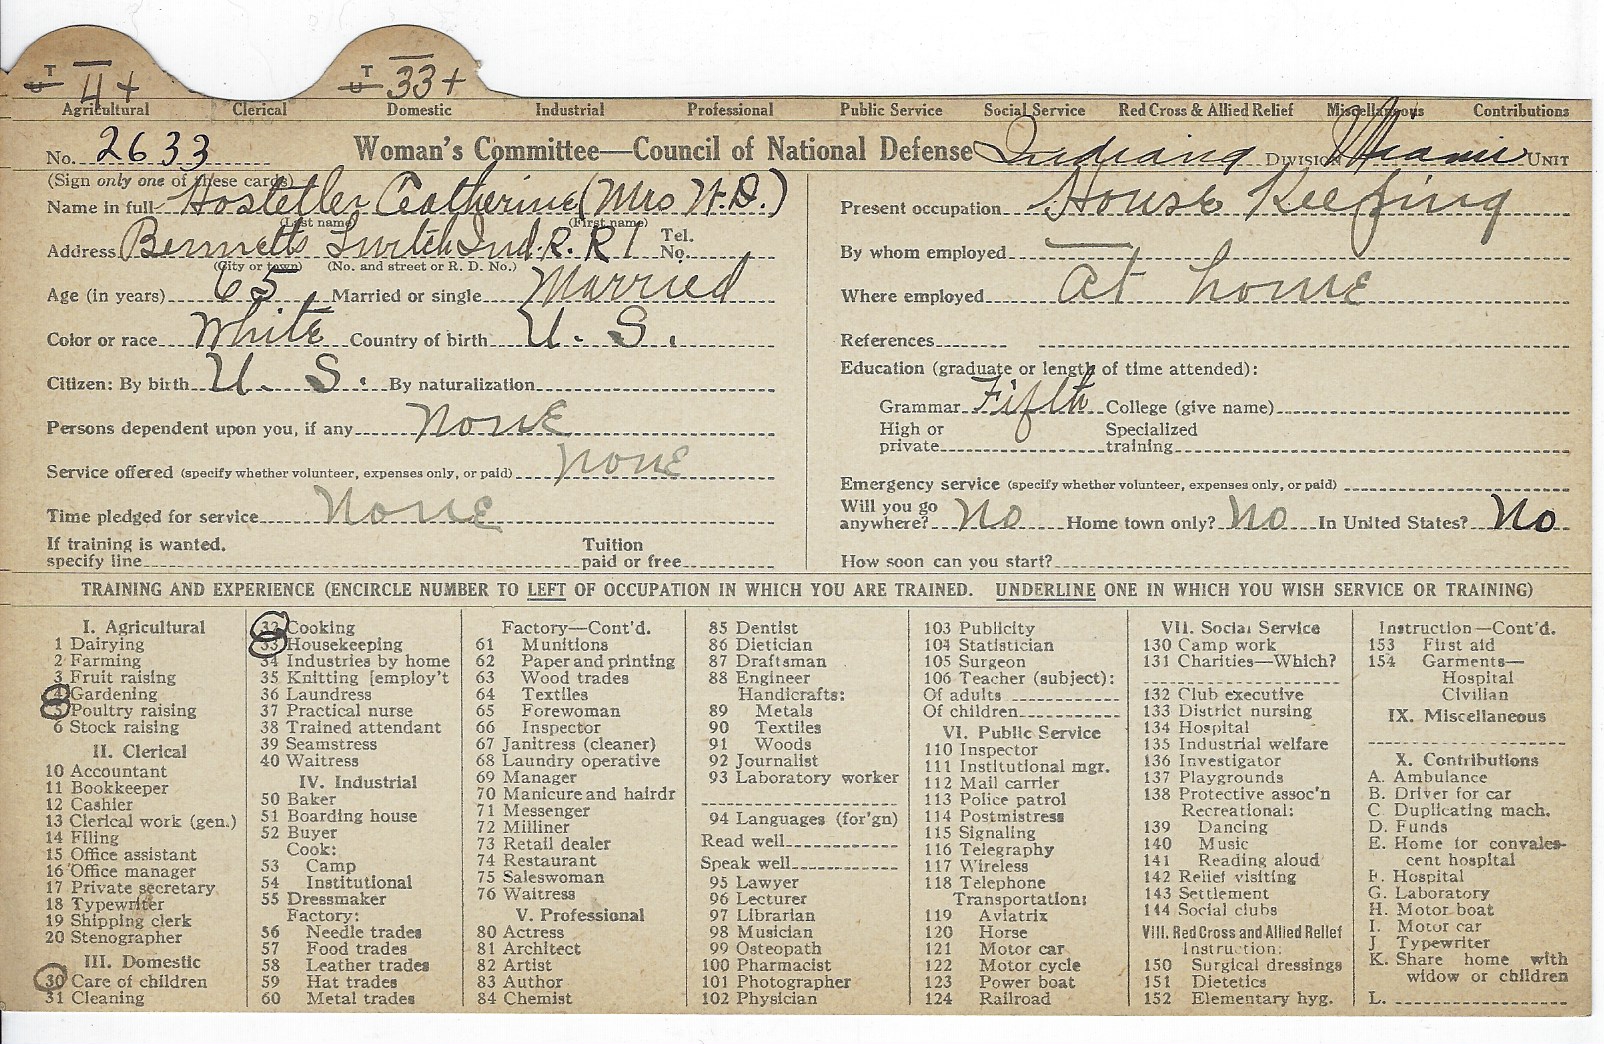 T U 4+ T U 33+
Agricultural Clerical Domestic Industrial Professional Public Service Social Service Red Cross & Allied Relief Miscellaneous Contributions
No. 2633 Woman's Committee—Council of National Defense Indiana DIVISION Miami UNIT
(Sign only one of these cards)
Name in full Hostetler Catherine (Mrs W.D.)
(Last name) (First name)
Address Bennetts Switch Ind. R. R 1 Tel. No.
(City or town) (No. and street or R. D. No.)
Age (in years) 65 Married or single Married
Color or race White Country of birth U. S.
Citizen: By birth U. S. By naturalization
Persons dependent upon you, if any None
Service offered (specify whether volunteer, expenses only, or paid) none
Time pledged for service None
If training is wanted, specify line Tuition paid or free
Present occupation House Keeping
By whom employed
Where employed At home
References
Education (graduate or length of time attended):
Grammar Fifth College (give name)
High or private Specialized training
Emergency service (specify whether volunteer, expenses only, or paid)
Will you go anywhere? No Home town only? No In United States? No
How soon can you start?
TRAINING AND EXPERIENCE (ENCIRCLE NUMBER TO LEFT OF OCCUPATION IN WHICH YOU ARE TRAINED. UNDERLINE ONE IN WHICH YOU WISH SERVICE OR TRAINING)
I. Agricultural
1 Dairying
2 Farming
3 Fruit raising
4 Gardening
5 Poultry raising
6 Stock raising
II. Clerical
10 Accountant
11 Bookkeeper
12 Cashier
13 Clerical work (gen.)
14 Filing
15 Office assistant
16 Office manager
17 Private secretary
18 Typewriter
19 Shipping clerk
20 Stenographer
III. Domestic
30 Care of children
31 Cleaning
32 Cooking
33 Housekeeping
34 Industries by home
35 Knitting [employ't
36 Laundress
37 Practical nurse
38 Trained attendant
39 Seamstress
40 Waitress
IV. Industrial
50 Baker
51 Boarding house
52 Buyer
Cook:
53 Camp
54 Institutional
55 Dressmaker
Factory:
56 Needle trades
57 Food trades
58 Leather trades
59 Hat trades
60 Metal trades
Factory—Cont'd.
61 Munitions
62 Paper and printing
63 Wood trades
64 Textiles
65 Forewoman
66 Inspector
67 Janitress (cleaner)
68 Laundry operative
69 Manager
70 Manicure and hairdr
71 Messenger
72 Milliner
73 Retail dealer
74 Restaurant
75 Saleswoman
76 Waitress
V. Professional
80 Actress
81 Architect
82 Artist
83 Author
84 Chemist
85 Dentist
86 Dietician
87 Draftsman
88 Engineer
Handicrafts:
89 Metals
90 Textiles
91 Woods
92 Journalist
93 Laboratory worker
94 Languages (for'gn)
Read well
Speak well
95 Lawyer
96 Lecturer
97 Librarian
98 Musician
99 Osteopath
100 Pharmacist
101 Photographer
102 Physician
103 Publicity
104 Statistician
105 Surgeon
106 Teacher (subject):
Of adults
Of children
VI. Public Service
110 Inspector
111 Institutional mgr.
112 Mail carrier
113 Police patrol
114 Postmistress
115 Signaling
116 Telegraphy
117 Wireless
118 Telephone
Transportation:
119 Aviatrix
120 Horse
121 Motor car
122 Motor cycle
123 Power boat
124 Railroad
VII. Social Service
130 Camp work
131 Charities—Which?
132 Club executive
133 District nursing
134 Hospital
135 Industrial welfare
136 Investigator
137 Playgrounds
138 Protective assoc'n
Recreational:
139 Dancing
140 Music
141 Reading aloud
142 Relief visiting
143 Settlement
144 Social clubs
VIII. Red Cross and Allied Relief
Instruction:
150 Surgical dressings
151 Dietetics
152 Elementary hyg.
Instruction—Cont'd.
153 First aid
154 Garments—
Hospital
Civilian
IX. Miscellaneous
X. Contributions
A. Ambulance
B. Driver for car
C. Duplicating mach.
D. Funds
E. Home for convales-
cent hospital
F. Hospital
G. Laboratory
H. Motor boat
I. Motor car
J. Typewriter
K. Share home with
widow or children
L.